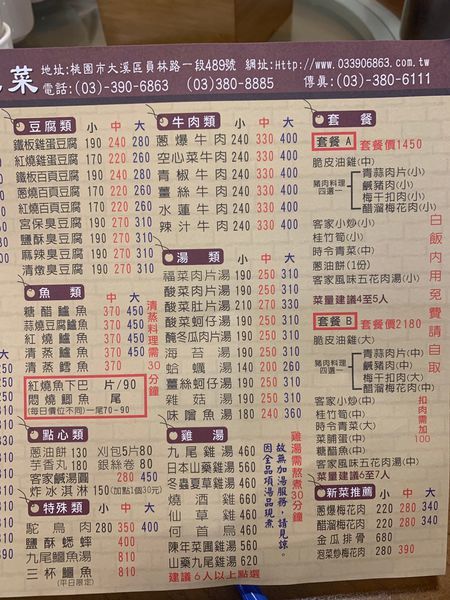 菜 地址:桃園市大溪區員林路一段489號 網址:Http://www.033906863.com.tw
電話:(03)-390-6863 (03)380-8885 傳真:(03)-380-6111
豆腐類 小 中 大
鐵板雞蛋豆腐 190 240 280
紅燒雞蛋豆腐 170 220 260
鐵板百頁豆腐 190 240 280
蔥燒百頁豆腐 170 220 260
紅燒百頁豆腐 170 220 260
宮保臭豆腐 190 270 310
鹽酥臭豆腐 190 270 310
麻辣臭豆腐 190 270 310
清燉臭豆腐 190 270 310
魚類 中 大
糖醋鱸魚 370 450
蒜燒豆腐鱸魚 370 450
紅燒鱸魚 370 450
清蒸鱸魚 370 450
清蒸鱈魚 370
清蒸料理需30分鐘
紅燒魚下巴 片/90
悶燒鯽魚 尾
(每日價位不同)一尾70-90
點心類
蔥油餅130 刈包5片80
芋香丸180 銀絲卷80
客家鹹湯圓 280 450
炸冰淇淋 150(加點1個30元)
特殊類 小 中 大
鴕鳥肉 280 350 400
鹽酥蟋蟀 400
九尾鱷魚湯 810
三杯鱷魚 810
(平日限定)
牛肉類 小 中 大
蔥爆牛肉 240 330 400
空心菜牛肉 240 330 400
青椒牛肉 240 330 400
薑絲牛肉 240 330 400
水蓮牛肉 240 330 400
辣汁牛肉 240 330 400
湯類 小 中 大
福菜肉片湯 190 250 310
酸菜肉片湯 190 250 310
酸菜肚片湯 210 270 340
酸菜蚵仔湯 190 250 310
醃冬瓜肉片湯 190 250 310
海苔湯 190 250 310
蛤蠣湯 190 250 310
薑絲蚵仔湯 190 250 310
雜菇湯 190 250 310
味噌魚湯 180 240 360
雞湯
九尾雞湯 460
日本山藥雞湯 460
冬蟲夏草雞湯 460
燒酒雞 660
仙草雞 460
何首烏 460
陳年菜圃雞湯 540
山藥九尾雞湯 540
建議6人以上點選
雞湯需熬煮30分鐘
因全品項湯品現煮
故無加湯服務，請見諒。
套餐
套餐A 套餐價1450
脆皮油雞(中)
豬肉料理四選一
青蒜肉片(小)
鹹豬肉(小)
梅干扣肉(小)
醋溜梅花肉(小)
客家小炒(小)
桂竹筍(小)
時令青菜(中)
蔥油餅(1份)
客家風味五花肉湯(小)
菜量建議4至5人
套餐B 套餐價2180
脆皮油雞(大)
豬肉料理四選一
青蒜肉片(中)
鹹豬肉(中)
梅干扣肉(大)
醋溜梅花肉(大)
客家小炒(中)
桂竹筍(中)
時令青菜(大)
菜脯蛋(中)
糖醋魚(中)
客家風味五花肉湯(中)
菜量建議6至8人
扣肉需加100
白飯內用免費請自取
新菜推薦 小 中 大
蔥爆梅花肉 220 280 340
醋溜梅花肉 220 280 340
金瓜排骨 680
泡菜炒梅花肉 280 390